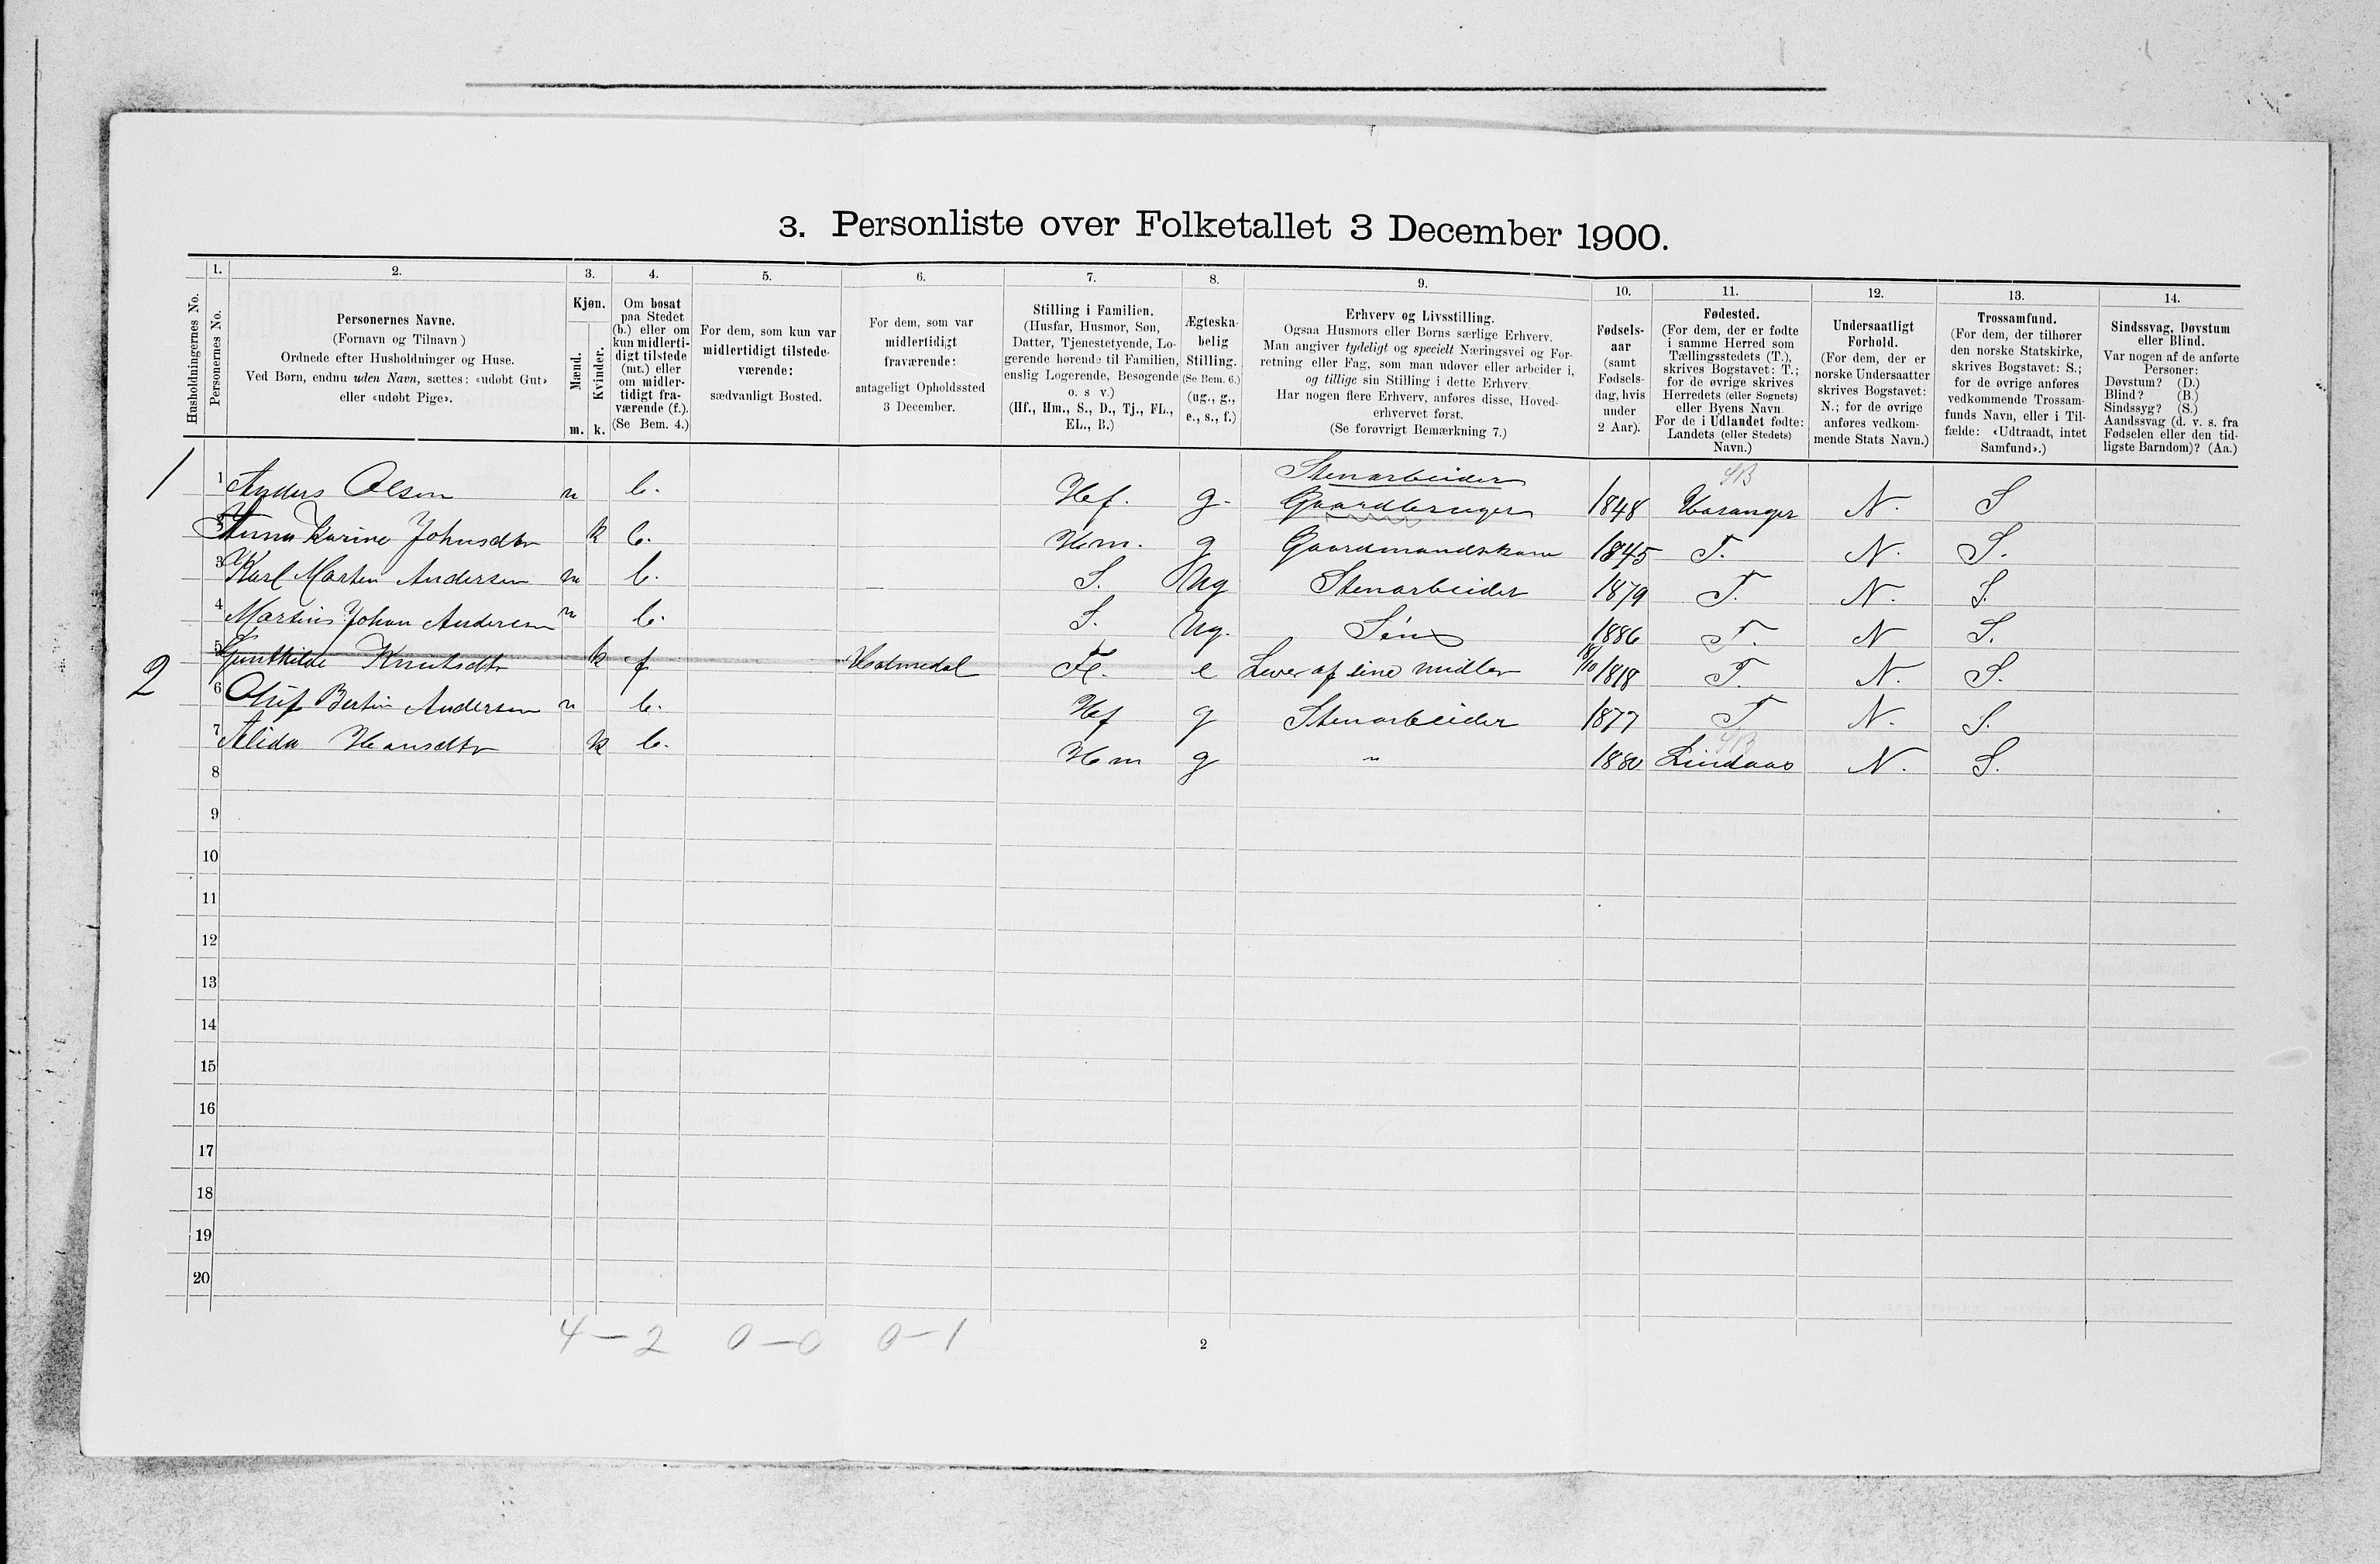 3. Personliste over Folketallet 3 December 1900.
Husholdningernes No.
1. Personernes No.
2. Personernes Navne.
(Fornavn og Tilnavn)
Ordnede efter Husholdninger og Huse.
Ved Børn, endnu uden Navn, sættes: «udøbt Gut»
eller «udøbt Pige».
3. Kjøn.
Mænd. m.
Kvinder. k.
4. Om bosat
paa Stedet
(b.) eller om
kun midlerti-
digt tilstede
(mt.) eller
om midler-
tidigt fra-
værende (f.).
(Se Bem. 4.)
5. For dem, som kun var
midlertidigt tilstede-
værende:
sædvanligt Bosted.
6. For dem, som var
midlertidigt
fraværende:
antageligt Opholdssted
3 December.
7. Stilling i Familien.
(Husfar, Husmor, Søn,
Datter, Tjenestetyende, Lo-
gerende hørende til Familien,
enslig Logerende, Besøgende
o. s v.)
(Hf., Hm., S., D., Tj., FL.,
EL., B.)
8. Ægteska-
belig
Stilling.
(Se Bem. 6.)
(ug., g.,
e., s., f.)
9. Erhverv og Livsstilling.
Ogsaa Husmors eller Børns særlige Erhverv.
Man angiver tydeligt og specielt Næringsvei og For-
retning eller Fag, som man udøver eller arbeider i,
og tillige sin Stilling i dette Erhverv.
Har nogen flere Erhverv, anføres disse, Hoved-
erhvervet først.
(Se forøvrigt Bemærkning 7.)
10. Fødsels-
aar
(samt
Fødsels-
dag, hvis
under
2 Aar).
11. Fødested.
(For dem, der er fødte
i samme Herred som
Tællingsstedets (T.),
skrives Bogstavet: T.;
for de øvrige skrives
Herredets (eller Sognets)
eller Byens Navn
For de i Udlandet fødte:
Landets (eller Stedets)
Navn.)
12. Undersaatligt
Forhold.
(For dem, der er
norske Undersaatter
skrives Bogstavet:
N.; for de øvrige
anføres vedkom-
mende Stats Navn.)
13. Trossamfund.
(For dem, der tilhører
den norske Statskirke,
skrives Bogstavet: S.;
for de øvrige anføres
vedkommende Trossam-
funds Navn, eller i Til-
fælde: «Udtraadt, intet
Samfund».)
14. Sindssvag, Døvstum
eller Blind.
Var nogen af de anførte
Personer:
Døvstum? (D.)
Blind? (B.)
Sindssyg? (S.)
Aandssvag (d. v. s. fra
Fødselen eller den tid-
ligste Barndom)? (Aa.)
SB
Stenarbeider
1 1 Anders Olsen m b. Hf. g. Gaardbruger 1848 Hosanger N. S
2 Anna Karine Johnsdtr k b. Hm. g Gaardmandskone 1845 T. N. S.
3 Karl Martin Andersen m b. S. Ug Stenarbeider 1879 T. N. S.
4 Martinus Johan Andersen m b. S. Ug. Søn 1886 T. N S.
5 Gunthilde Knutsdtr k f Holmedal Fl. e Lever af sine midler 1818 T. N. S.
2 6 Oluf Bertin Andersen m b. Hf g Stenarbeider 1877 T N. S.
SB
7 Alida Hansdtr k b. Hm g " 1880 Lindaas N. S.
8
9
10
11
12
13
14
15
16
17
18
19
20
4 – 2 0 – 0 0 – 1
2